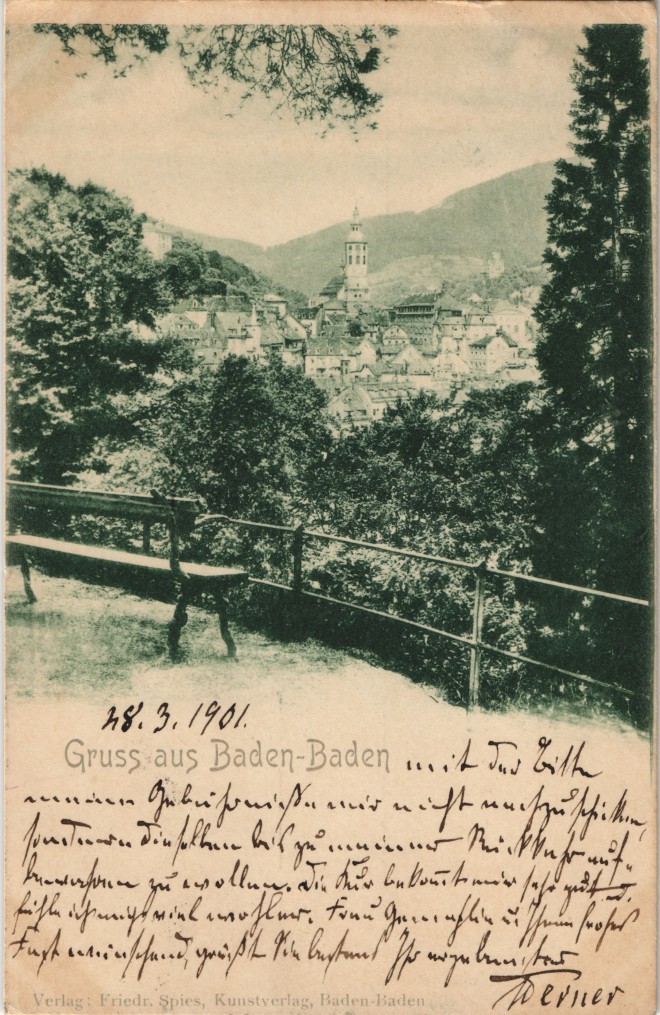 28. 3. 1901.
Gruss aus Baden-Baden mit der Bitte
meine Gebührnisse mir nicht nachzuschicken,
sondern dieselben bis zu meiner Rückkehr auf-
bewahren zu wollen. Die Kur bekom̄t mir sehr gut u.
fühle ich mich viel wohler. Frau Gemahlin u. Ihnen frohes
Fest wünschend, grüßt Sie bestens Ihr ergebenster
Werner
Verlag: Friedr. Spies, Kunstverlag, Baden-Baden